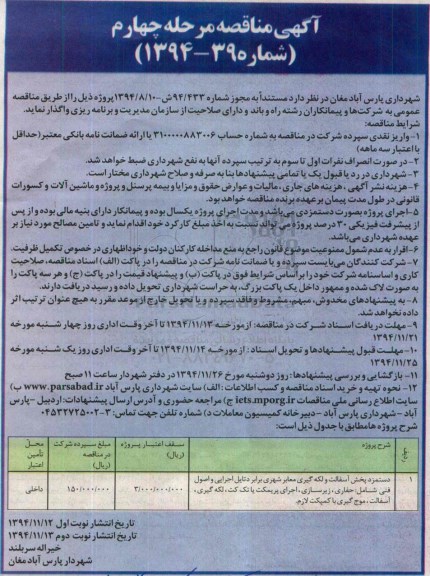 آگهی مناقصه مرحله چهارم
(شماره ۳۹-۱۳۹۴)
شهرداری پارس آباد مغان در نظر دارد مستنداً به مجوز شماره ۹۴/۴۳۳ش-۱۳۹۴/۸/۱۰ پروژه ذیل را از طریق مناقصه
عمومی به شرکت‌ها و پیمانکاران رشته راه و باند و دارای صلاحیت از سازمان مدیریت و برنامه ریزی واگذار نماید.
شرایط مناقصه:
۱- واریز نقدی سپرده شرکت در مناقصه به شماره حساب ۳۱۰۰۰۰۰۸۸۳۰۰۶ یا ارائه ضمانت نامه بانکی معتبر (حداقل
با اعتبار سه ماهه)
۲- در صورت انصراف نفرات اول تا سوم به ترتیب سپرده آنها به نفع شهرداری ضبط خواهد شد.
۳- شهرداری در رد یا قبول یک یا تمامی پیشنهادها بنا به صرفه و صلاح شهرداری مختار است.
۴- هزینه نشر آگهی، هزینه های جاری، مالیات و عوارض حقوق و مزایا و بیمه پرسنل و پروژه و ماشین آلات و کسورات
قانونی در طول مدت پیمان بر عهده برنده مناقصه خواهد بود.
۵- اجرای پروژه بصورت دستمزدی می باشد و مدت اجرای پروژه یکسال بوده و پیمانکار دارای بنیه مالی بوده و از پس
از پیشرفت فیزیکی ۳۰ درصد پروژه می تواند نسبت به اخذ مبلغ کارکرد خود اقدام نماید و تامین مصالح مورد نیاز بر
عهده شهرداری می باشد.
۶- اقرار به عدم شمول ممنوعیت موضوع قانون راجع به منع مداخله کارکنان دولت و خوداظهاری در خصوص تکمیل ظرفیت
۷- شرکت کنندگان می بایست سپرده و یا ضمانت نامه شرکت در مناقصه را در پاکت (الف) اسناد مناقصه، صلاحیت
کاری و اساسنامه شرکت خود را بر اساس شرایط فوق در پاکت (ب) و پیشنهاد قیمت را در پاکت (ج) و هر سه پاکت را
به صورت لاک شده و ممهور داخل یک پاکت بزرگ، به حراست شهرداری تحویل داده و رسید دریافت دارند.
۸- به پیشنهادهای مخدوش، مبهم، مشروط و فاقد سپرده و یا تحویل خارج از موعد مقرر به هیچ عنوان ترتیب اثر
داده نخواهد شد.
۹- مهلت دریافت اسناد شرکت در مناقصه: از مورخه ۱۳۹۴/۱۱/۱۳ تا آخر وقت اداری روز چهار شنبه مورخه
۱۳۹۴/۱۱/۲۱
۱۰- مهلت قبول پیشنهادها و تحویل اسناد: از مورخه ۱۳۹۴/۱۱/۱۴ تا آخر وقت اداری روز یک شنبه مورخه
۱۳۹۴/۱۱/۲۵
۱۱- بازگشایی و بررسی پیشنهادها: روز دوشنبه مورخ ۱۳۹۴/۱۱/۲۶ در دفتر شهردار ساعت ۱۱ صبح
۱۲- نحوه تهیه و خرید اسناد مناقصه و کسب اطلاعات: الف) سایت شهرداری پارس آباد www.parsabad.ir ب)
سایت اطلاع رسانی ملی مناقصات iets.mporg.ir ج) مراجعه حضوری و آدرس ارسال پیشنهادات: اردبیل - پارس
آباد - شهرداری پارس آباد - دبیرخانه کمیسیون معاملات د) شماره تلفن جهت تماس: ۳-۰۴۵۳۲۷۲۵۰۰۲
شرح پروژه ها مطابق با جدول ذیل است:
ردیف شرح پروژه سقف اعتبار پروژه (ریال) مبلغ سپرده شرکت در مناقصه (ریال) محل تأمین اعتبار
۱ دستمزد پخش آسفالت و لکه گیری معابر شهری برابر دتایل اجرایی و اصول
فنی شامل: حفاری، زیرسازی، اجرای پریمکت یا تک کت، لکه گیری،
آسفالت، موج گیری با کمپکت لازم. ۳/۰۰۰/۰۰۰/۰۰۰ ۱۵۰/۰۰۰/۰۰۰ داخلی
تاریخ انتشار نوبت اول ۱۳۹۴/۱۱/۱۲
تاریخ انتشار نوبت دوم ۱۳۹۴/۱۱/۱۳
خیراله سربلند
شهردار پارس آباد مغان